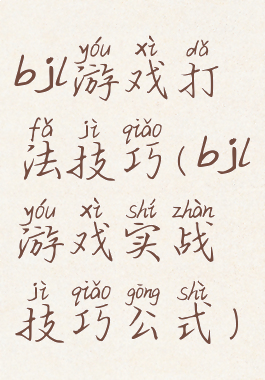 yóu xì dǎ
bjl游戏打
fǎ jì qiǎo
法技巧(bjl
yóu xì shí zhàn
游戏实战
jì qiǎo gōng shì
技巧公式)